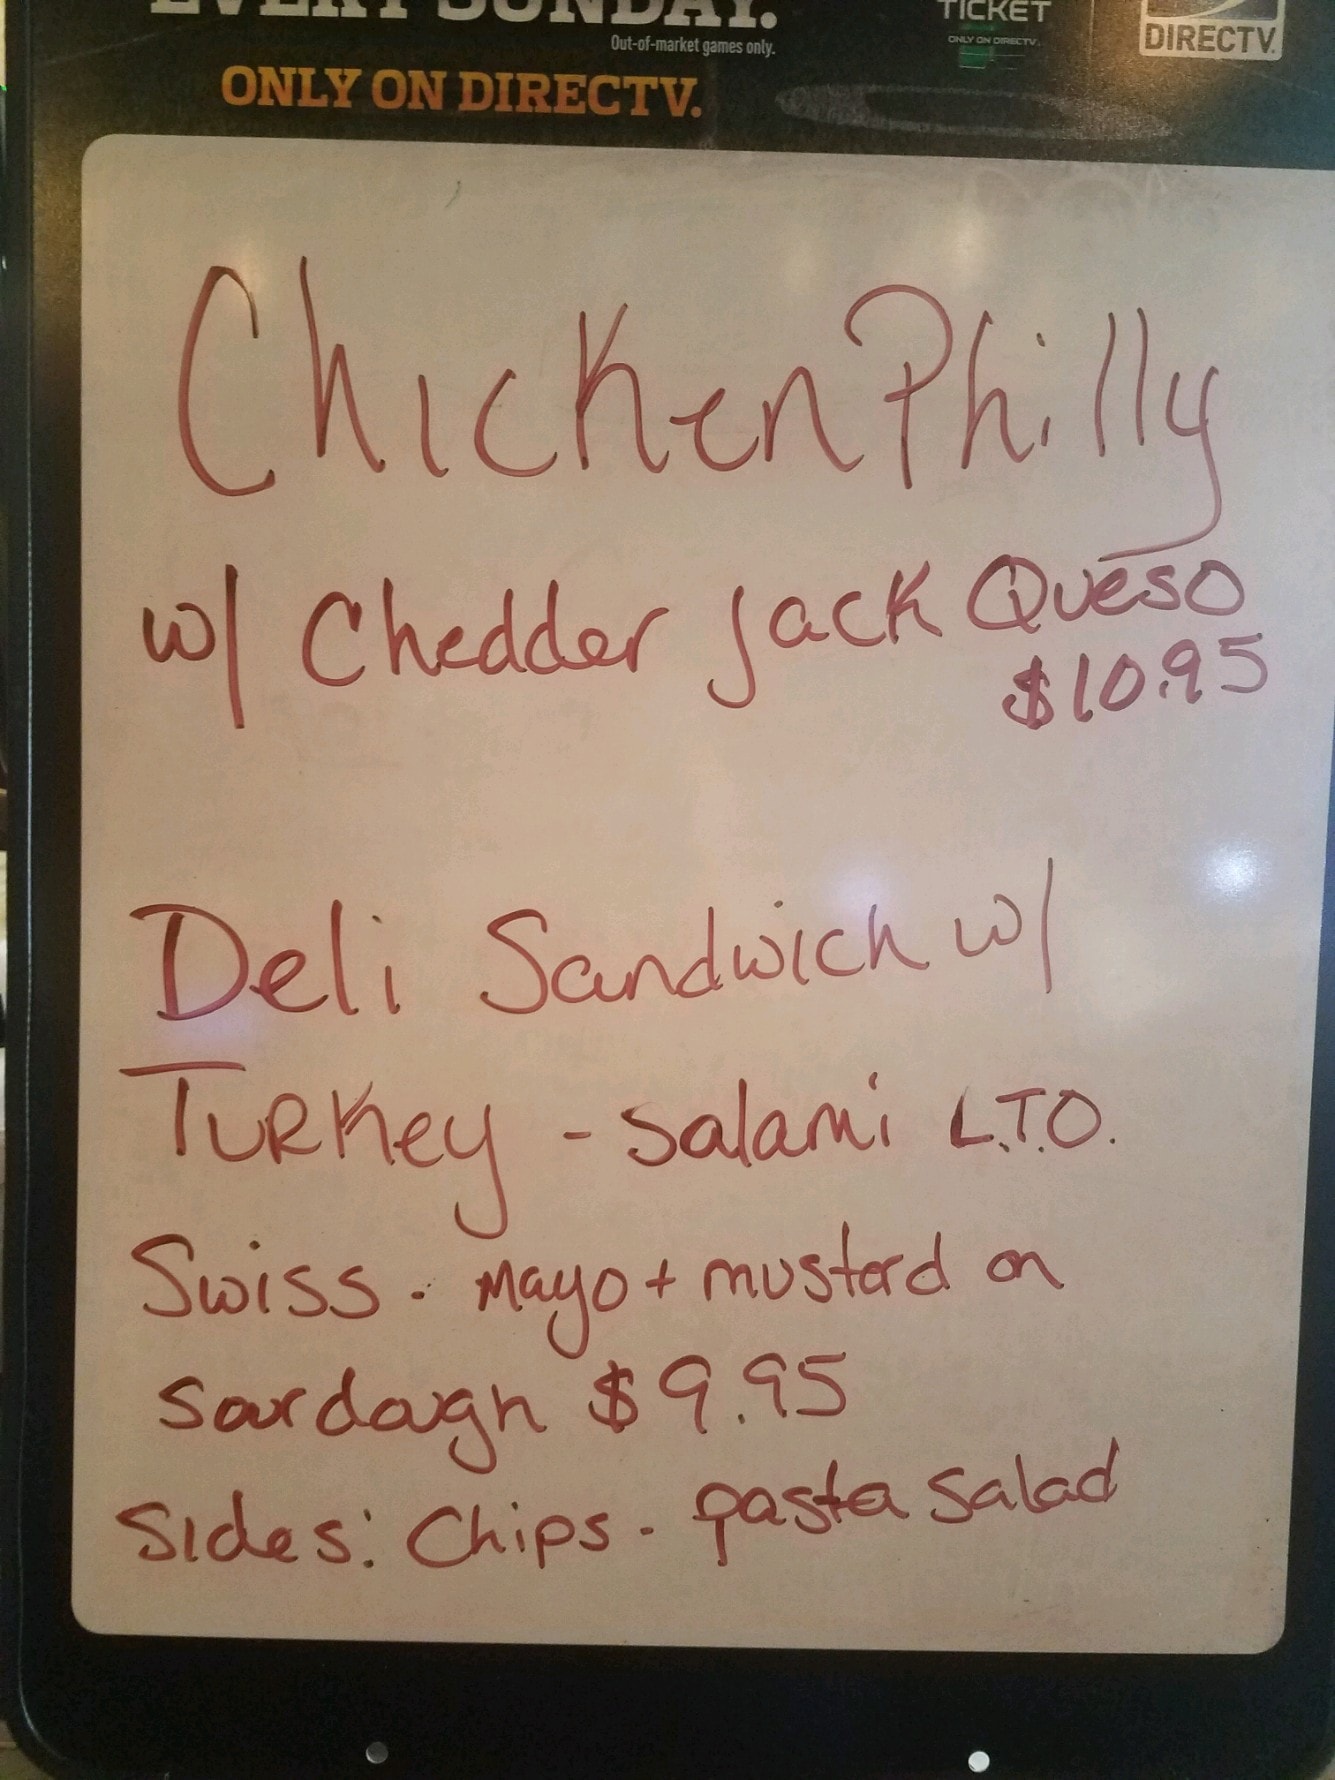 EVERY SUNDAY.
Out-of-market games only.
ONLY ON DIRECTV.
TICKET
ONLY ON DIRECTV.
DIRECTV
Chicken Philly
w/ Chedder Jack Queso
$10.95
Deli Sandwich w/
Turkey - Salami L.T.O.
Swiss - mayo + mustard on
Sourdough $9.95
Sides: Chips - pasta Salad